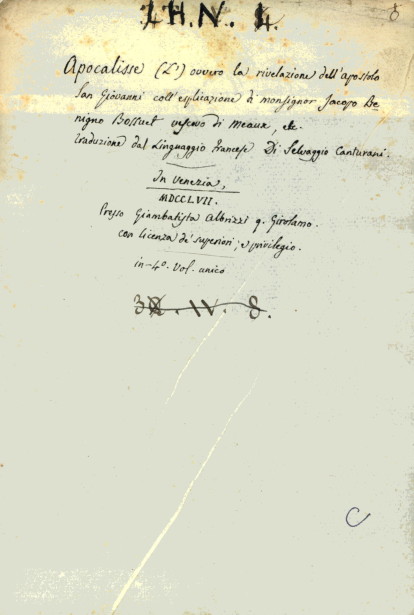 H. N. 4.
8
Apocalisse (L') ovvero la rivelazione dell'apostolo
San Giovanni coll'esplicazione di monsignor Jacopo Be=
nigno Bossuet vescovo di Meaux, etc.
traduzione dal Linguaggio francese Di Selvaggio Canturani.
In Venezia,
MDCCLVII.
Presso Giambatista Albrizzi q. Girolamo.
con licenza de' superiori, e privilegio.
in-4°. vol. unico
IV. 8.
C